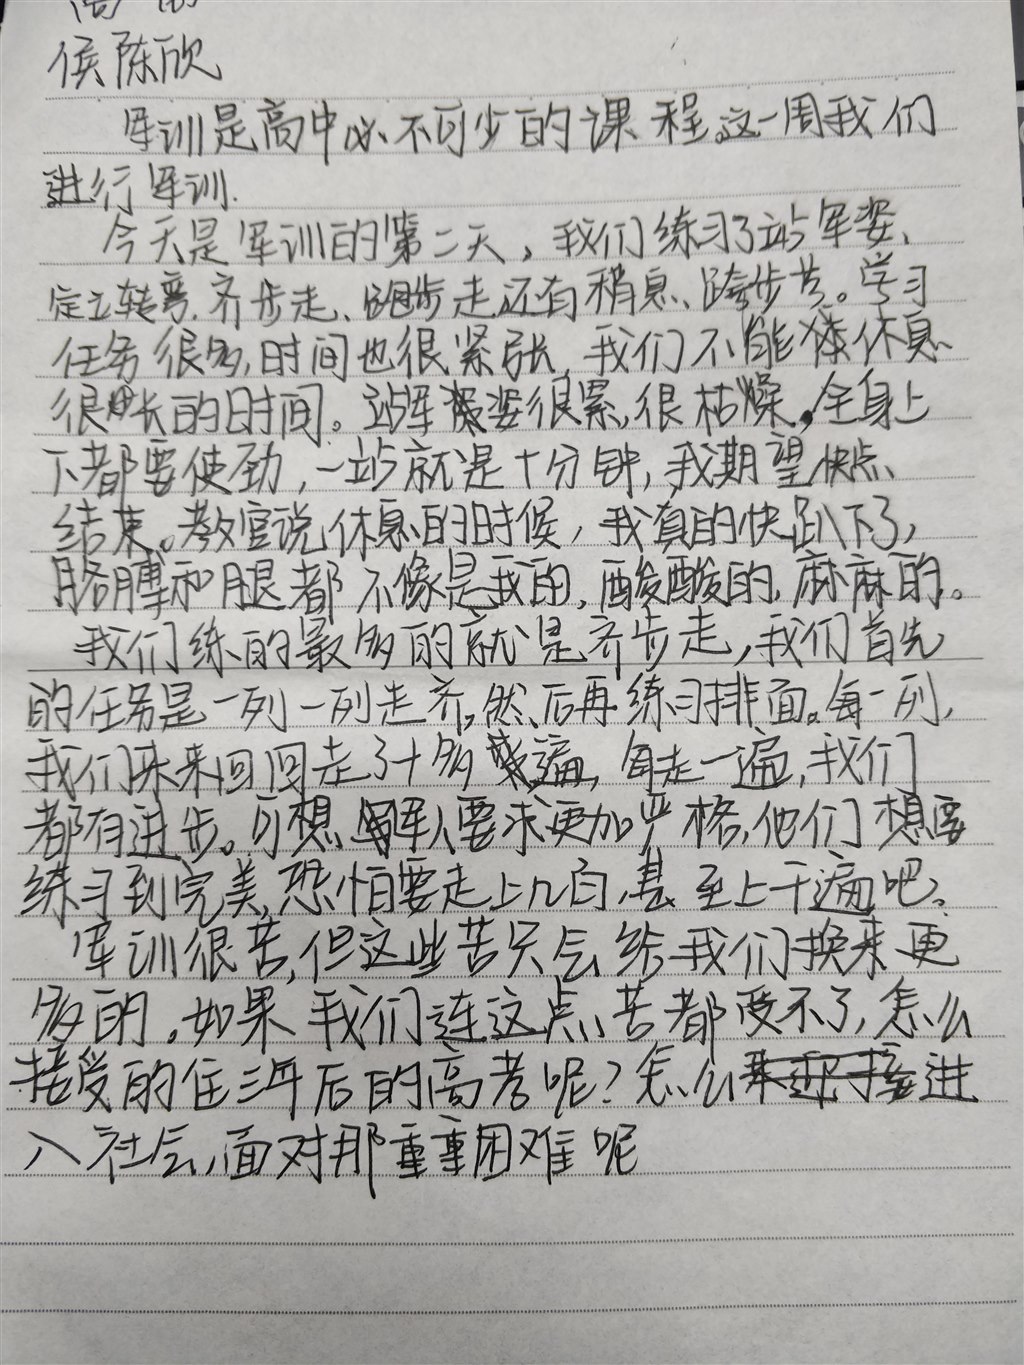 侯陈欣
军训是高中必不可少的课程。这一周我们
进行军训.
今天是军训的第二天，我们练习了站军姿、
定立转弯、齐步走、跑步走还有稍息、跨步等。学习
任务很多,时间也很紧张,我们不能休息
很长的时间。站军姿很累,很枯燥。全身上
下都要使劲,一站就是十分钟,我期望快点
结束。教官说休息的时候,我真的快趴下了,
胳膊和腿都不像是我的,酸酸的,麻麻的。
我们练的最多的就是齐步走,我们首先
的任务是一列一列走齐,然后再练习排面。每一列,
我们来来回回走了十多遍,每走一遍,我们
都有进步。可想,军人要求更加严格,他们想要
练习到完美,恐怕要走上几百,甚至上千遍吧?
军训很苦,但这些苦只会给我们换来更
多的。如果我们连这点苦都受不了,怎么
接受的住三年后的高考呢?怎么进
入社会,面对那重重困难呢